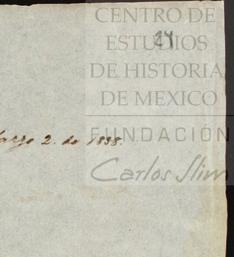 CENTRO DE
24
ESTUDIOS
DE HISTORIA
DE MEXICO
FUNDACIÓN
Carlos Slim
Marzo 2. de 1838.